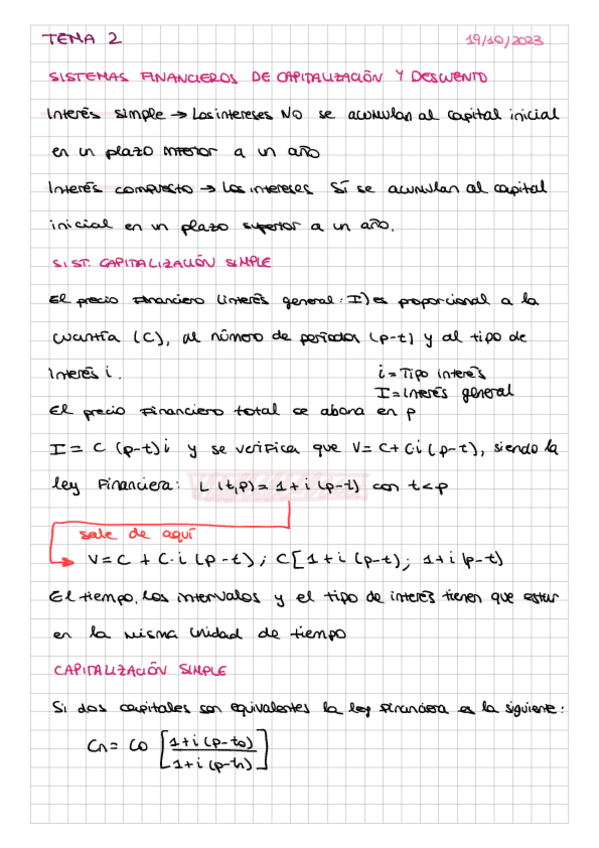 TEMA 2 19/10/2023
SISTEMAS FINANCIEROS DE CAPITALIZACIÓN Y DESCUENTO
Interés simple → Los intereses NO se acumulan al capital inicial
en un plazo inferior a un año
Interés compuesto → Los intereses SÍ se acumulan al capital
inicial en un plazo superior a un año.
SIST. CAPITALIZACIÓN SIMPLE
El precio financiero (interés general: I) es proporcional a la
cuantía (C), al número de periodos (p-t) y al tipo de
interés i. i = Tipo interés
I = Interés general
El precio financiero total se abona en p
I = C (p-t) i y se verifica que V = C + C·i (p-t), siendo la
ley financiera: L (t,p) = 1 + i (p-t) con t<p
sale de aquí
V = C + C·i (p-t) ; C [1 + i (p-t) ; 1 + i (p-t)
El tiempo, los intervalos y el tipo de interés tienen que estar
en la misma unidad de tiempo
CAPITALIZACIÓN SIMPLE
Si dos capitales son equivalentes la ley financiera es la siguiente:
Cn = C0 [1 + i (p-t0) / 1 + i (p-tn)]